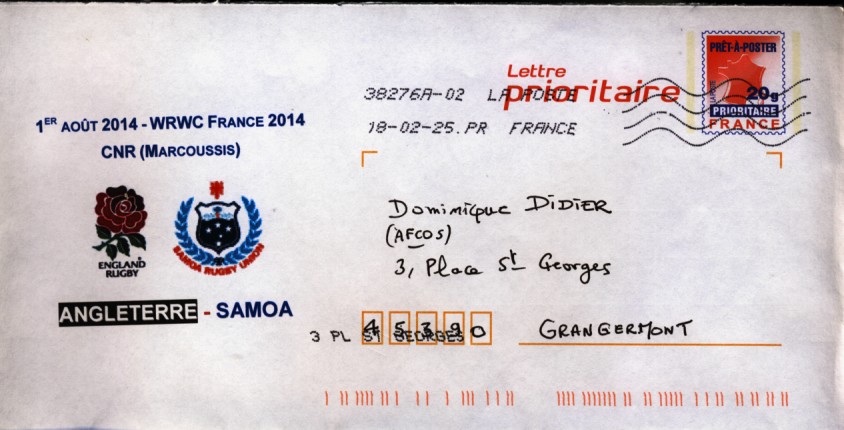 1ER AOÛT 2014 - WRWC FRANCE 2014
CNR (MARCOUSSIS)
ENGLAND
RUGBY
SAMOA RUGBY UNION
ANGLETERRE - SAMOA
Lettre
prioritaire
38276A-02 LA POSTE
18-02-25.PR FRANCE
PRÊT-À-POSTER
LA POSTE
20g
PRIORITAIRE
FRANCE
Dominique DIDIER
(AFCOS)
3, Place St Georges
45390 GRANGERMONT
3 PL ST GEORGES